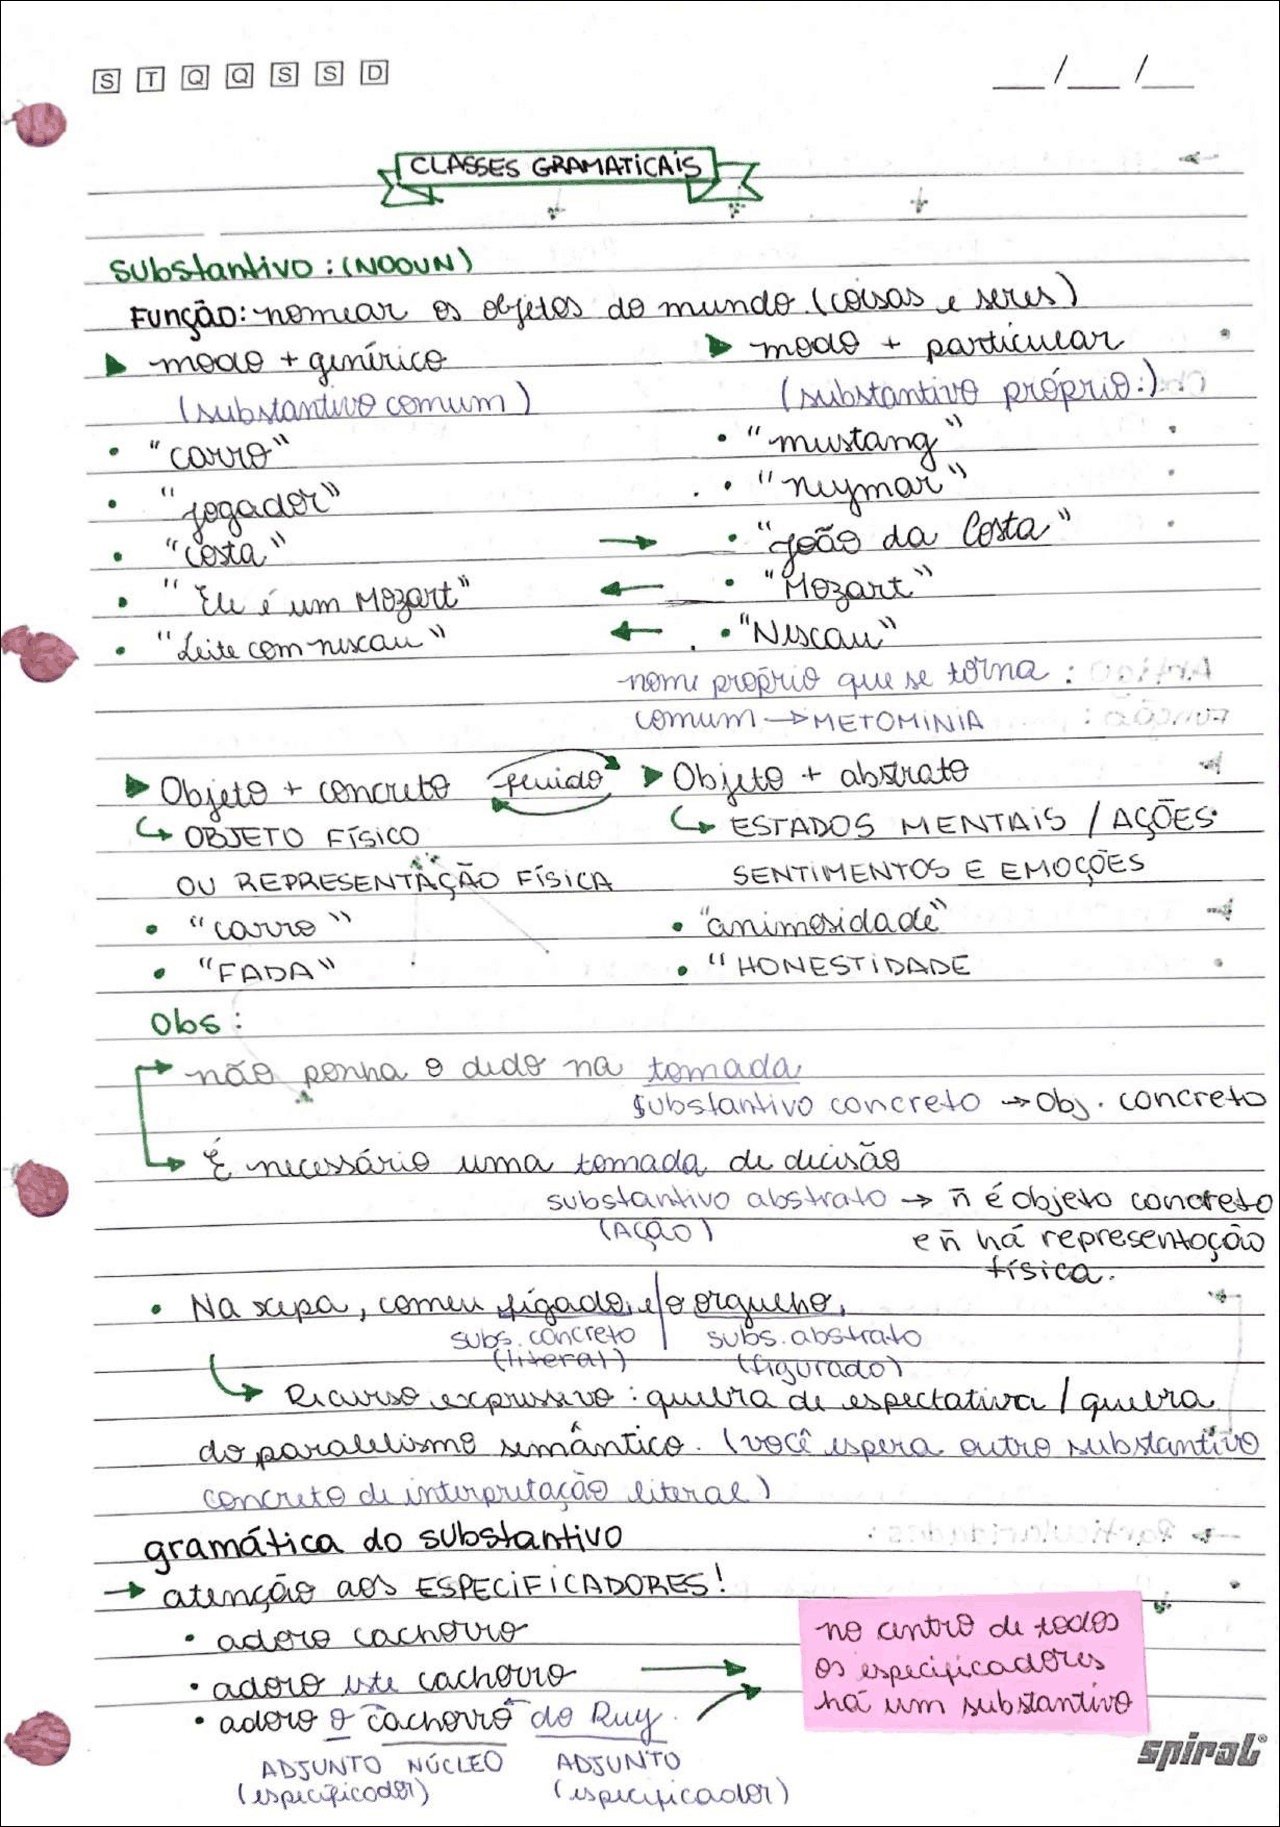 S T Q Q S S D
__/__/__
CLASSES GRAMATICAIS
Substantivo: (NOOUN)
FUNÇÃO: nomear os objetos do mundo (coisas e seres)
modo + genérico
modo + particular
(substantivo comum)
(substantivo próprio:)
• "carro"
• "mustang"
• "jogador"
• "neymar"
• "costa" → • "João da Costa"
• "Ele é um Mozart" ← • "Mozart"
• "Leite com nescau" ← • "Nescau"
nome próprio que se torna
comum → METOMINIA
Objeto + concreto fluido Objeto + abstrato
OBJETO FÍSICO
ESTADOS MENTAIS / AÇÕES
OU REPRESENTAÇÃO FÍSICA
SENTIMENTOS E EMOÇÕES
• "carro"
• "animosidade"
• "FADA"
• "HONESTIDADE
Obs:
→ não ponha o dedo na tomada
substantivo concreto → Obj. concreto
→ É necessário uma tomada de decisão
substantivo abstrato → ñ é objeto concreto
(AÇÃO)
e ñ há representação
física.
• Na xepa, comeu fígado, e/o orgulho,
subs. concreto | subs. abstrato
(literal) (figurado)
Recurso expressivo: quebra de espectativa / quebra
do paralelismo semântico. (você espera outro substantivo
concreto de interpretação literal)
gramática do substantivo
→ atenção aos ESPECIFICADORES!
• adoro cachorro
• adoro este cachorro →
• adoro o cachorro do Ruy.
no centro de todos
os especificadores
há um substantivo
ADJUNTO NÚCLEO ADJUNTO
(especificador) (especificador)
spiral®